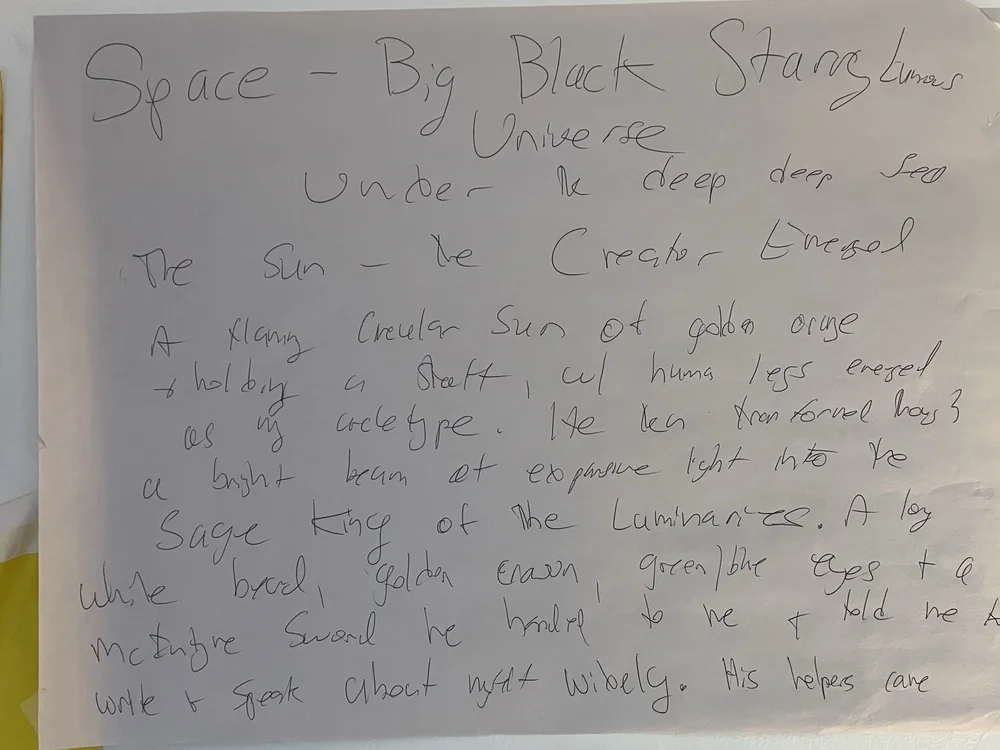 Space - Big Black Starry Lumos
Universe
Under the deep deep Sea
The Sun - the Creator Emerged
A flaming Circular Sun of golden orange
+ holding a Staff, w/ human legs emerged
as my archetype. He then transformed
a bright beam of expansive light into the
Sage King of the Luminaries. A long
white beard, golden crown, green/blue eyes + a
McIntyre Sword he handed to me + told me to
write + speak about widely. His helpers came